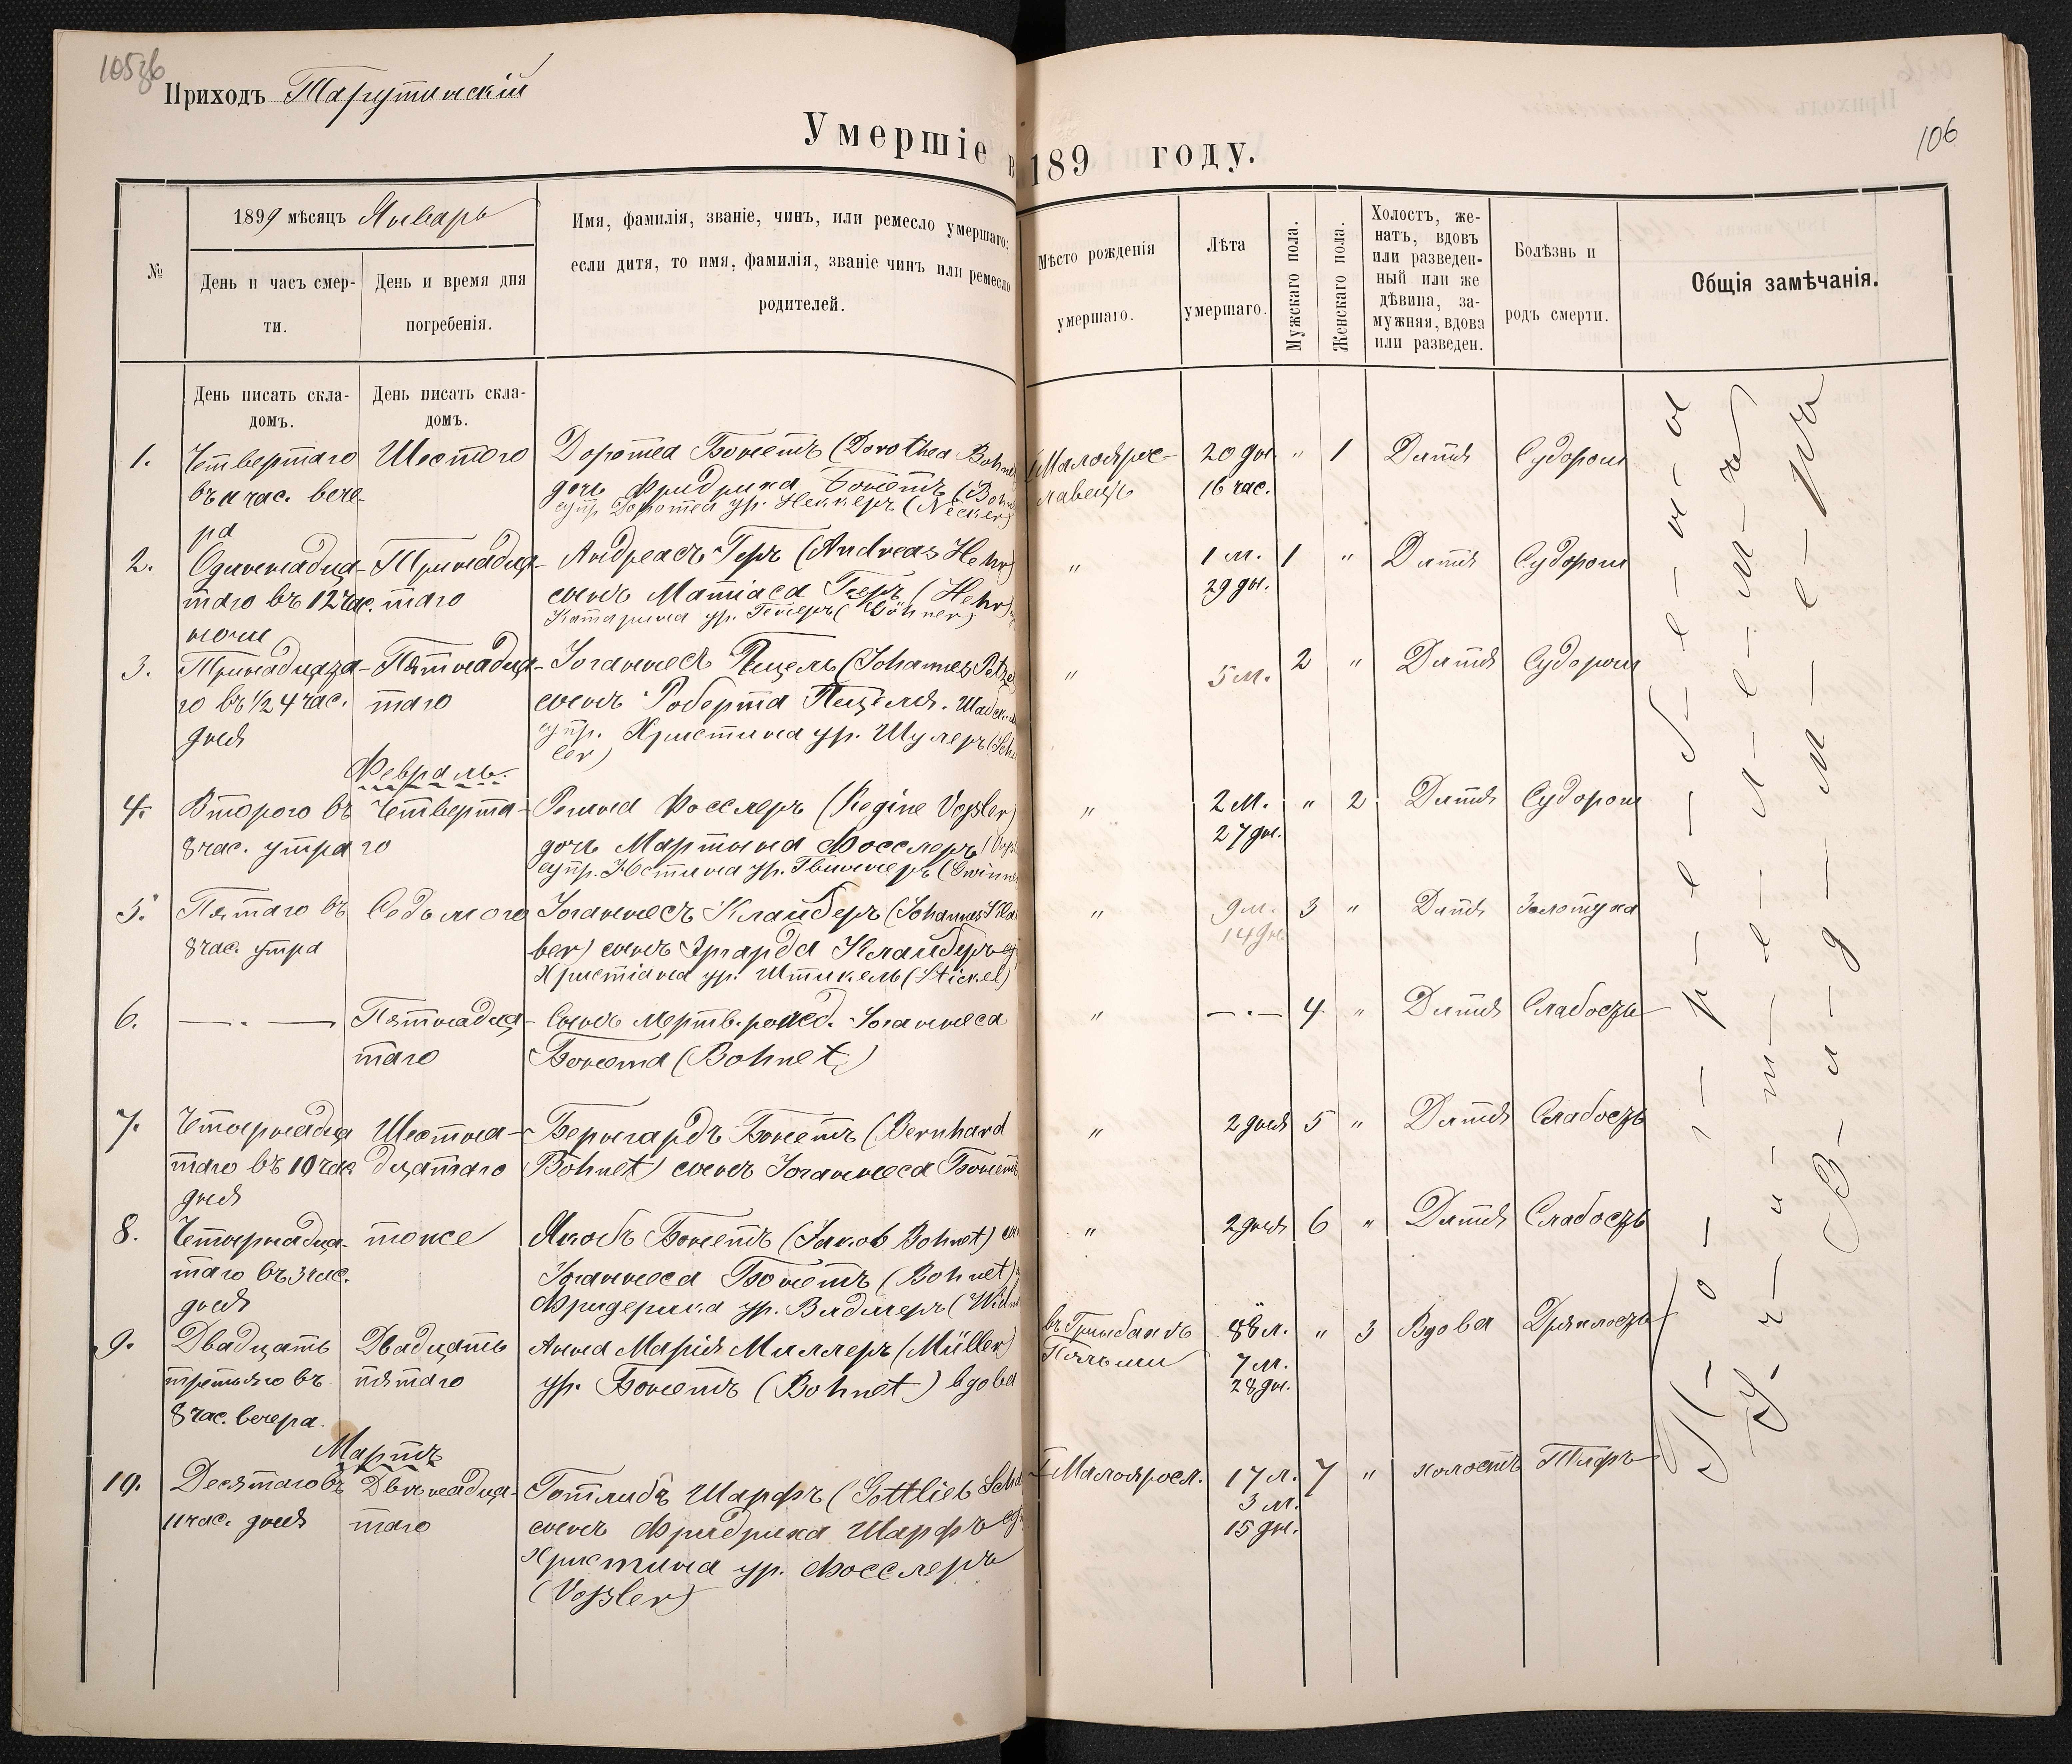 105об
Приходъ Тарутинскій
Умершіе в 189 году.
106
№
1899 мѣсяцъ Январь
День и часъ смер-
ти.
День и время дня
погребенія.
Имя, фамилія, званіе, чинъ, или ремесло умершаго;
если дитя, то имя, фамилія, званіе чинъ или ремесло
родителей.
Мѣсто рожденія
умершаго.
Лѣта
умершаго.
Мужскаго пола.
Женскаго пола.
Холостъ, же-
натъ, вдовъ
или разведен-
ный или же
дѣвица, за-
мужняя, вдова
или разведен.
Болѣзнь и
родъ смерти.
Общія замѣчанія.
День писать скла-
домъ.
День писать скла-
домъ.
1.
Четвертаго
въ 11 час. вече-
ра
Шестого
Доротеа Бонетъ (Dorothea Bohne
дочь Фридриха Бонетъ (Bohn
супр. Доротеа ур. Неккеръ (Necker)
Малояросс-
лавецъ
20 дн.
16 час.
" 1
Дитя
Судороги
2.
Одиннадца-
таго въ 12 час.
ночи
Тринадца-
таго
Андреасъ Геръ (Andreas Hehr)
сынъ Матіаса Геръ (Hehr)
Катарина ур. Генеръ (Höhner)
"
1 м.
29 дн.
1 "
Дитя
Судороги
3.
Тринадцата-
го въ 1/2 4 час.
дня
Пятнадца-
таго
Іоганнесъ Пецель (Johannes Petze
сынъ Роберта Пецеля.
супр. Христина ур. Шулеръ (Schu
ler)
"
5 м.
2 "
Дитя
Судороги
Февраль.
4.
Второго въ
8 час. утра
Четверта-
го
Регина Фосслеръ (Regine Voßler)
дочь Мартина Фосслеръ (Voß
супр. Юстина ур. Гвиннеръ (Gwinne
"
2 м.
27 дн.
" 2
Дитя
Судороги
5.
Пятаго въ
8 час. утра
Седьмого
Іоганнесъ Клайберъ (Johannes Klai
ber) сынъ Эрарда Клайберъ
Христіана ур. Штикель (Stickel)
"
9 м.
14 дн.
3 "
Дитя
Золотуха
6.
— . —
Пятнадца-
таго
Сынъ мертв.рожд. Іоганнеса
Бонета (Bohnet)
"
— . —
4 "
Дитя
Слабость
7.
Четырнадца
таго въ 10 час
дня
Шестна-
дцатаго
Бернгардъ Бонетъ (Bernhard
Bohnet) сынъ Іоганнеса Бонетъ
"
2 дня
5 "
Дитя
Слабость
8.
Четырнадца-
таго въ 3 час.
дня
тоже
Якобъ Бонетъ (Jakob Bohnet) сын
Іоганнеса Бонетъ (Bohnet)
Фридерика ур. Видмеръ (Widm
"
2 дня
6 "
Дитя
Слабость
9.
Двадцать
третьяго въ
8 час. вечера.
Двадцать
пятаго
Анна Марія Миллеръ (Müller)
ур. Бонетъ (Bohnet) вдова
въ Гринбахъ
Польши
88 л.
7 м.
28 дн.
" 3
Вдова
Дряхлость
Мартъ
10.
Десятаго въ
11 час. дня
Двѣнадца-
таго
Готлибъ Шарфъ (Gottlieb Scha
сынъ Фридриха Шарфъ
Христина ур. Фосслеръ
(Voßler)
Малояросл.
17 л.
3 м.
15 дн.
7 "
холостъ
Тифъ
П-о-г-р-е-б-е-н-ы
У-ч-и-т-е-л-е-м-ъ
В-и-д-м-е-ръ